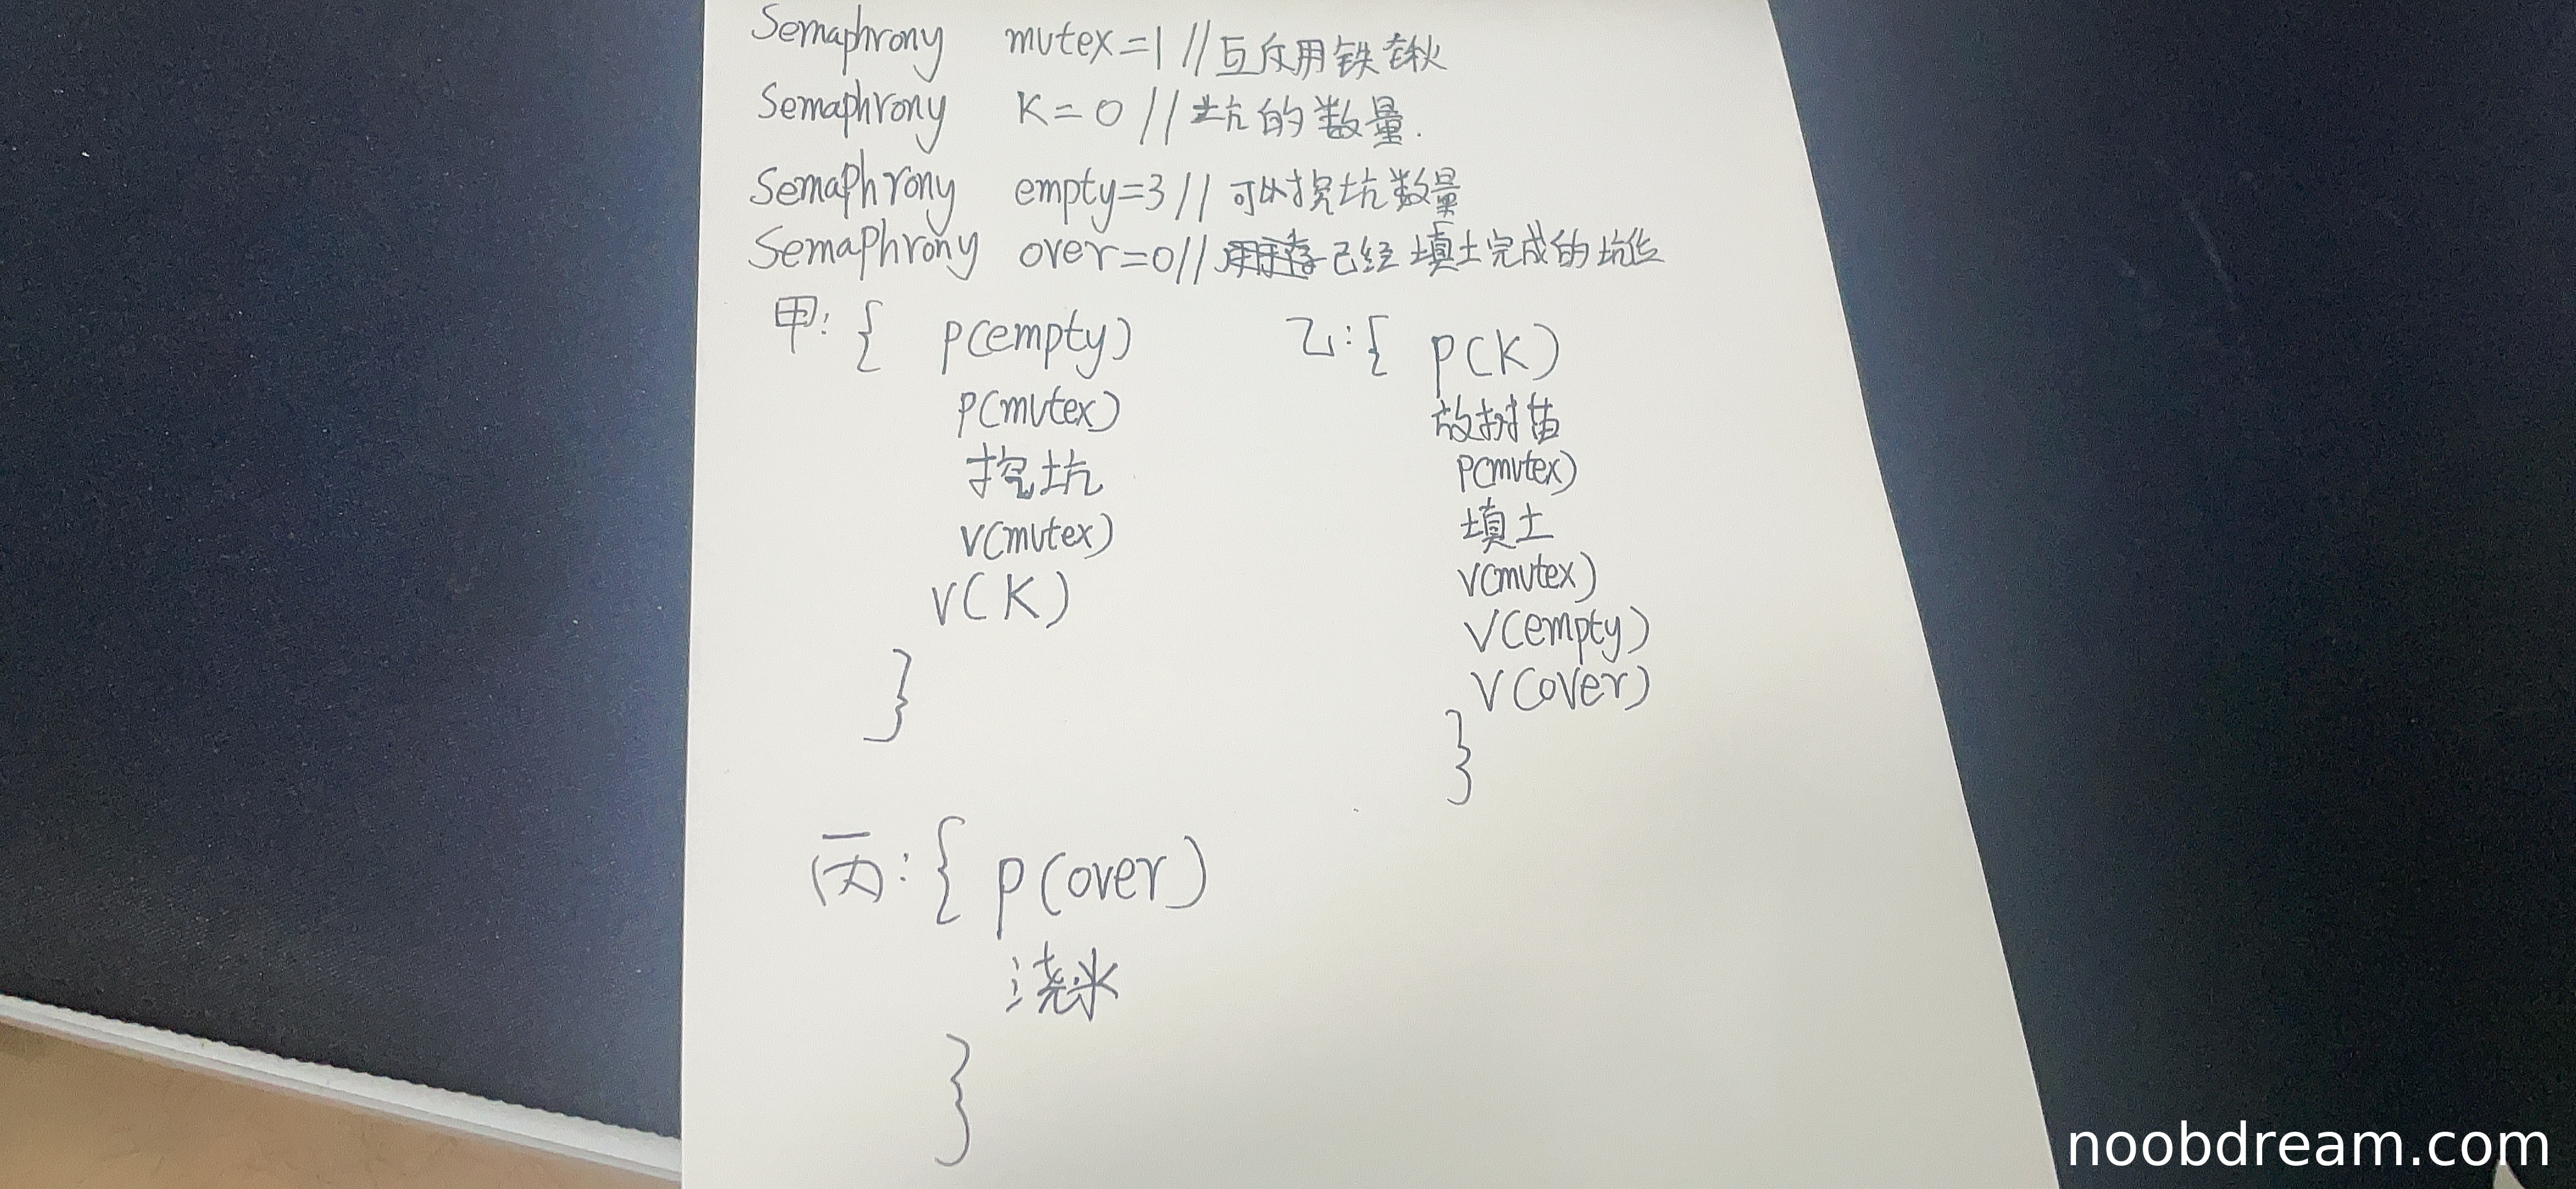 Semaphrony mutex=1 //互斥用铁锹
Semaphrony K=0 //坑的数量.
Semaphrony empty=3 //可以挖坑数量
Semaphrony over=0 //已经填土完成的坑位
甲:{ p(empty)
p(mutex)
挖坑
v(mutex)
v(K)
}
乙:{ p(K)
放树苗
p(mutex)
填土
v(mutex)
v(empty)
v(over)
}
丙:{ p(over)
浇水
}
noobdream.com